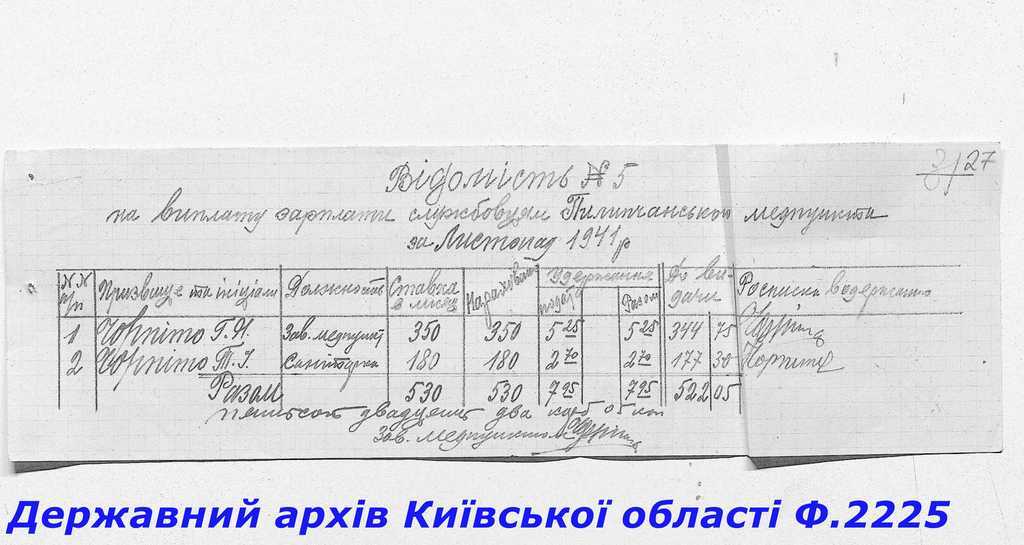 3/27
Відомість № 5
на виплату зарплати службовцям Пилипчанського медпункта
за Листопад 1941 р
№№ п/п Призвіще та ініціали Должность Ставка в місяц Нараховано Удержання подат Разом До видачи Росписка в одержанню
1 Чорпіто Г.Н. Зав. медпункт 350 350 5 25 5 25 344 75
2 Чорпіто Т.І. Санітарка 180 180 2 70 2 70 177 30
Разом 530 530 7 95 7 95 522 05
пятьсот двадцять два карб 05 коп
Зав. медпункто
Державний архів Київської області Ф.2225